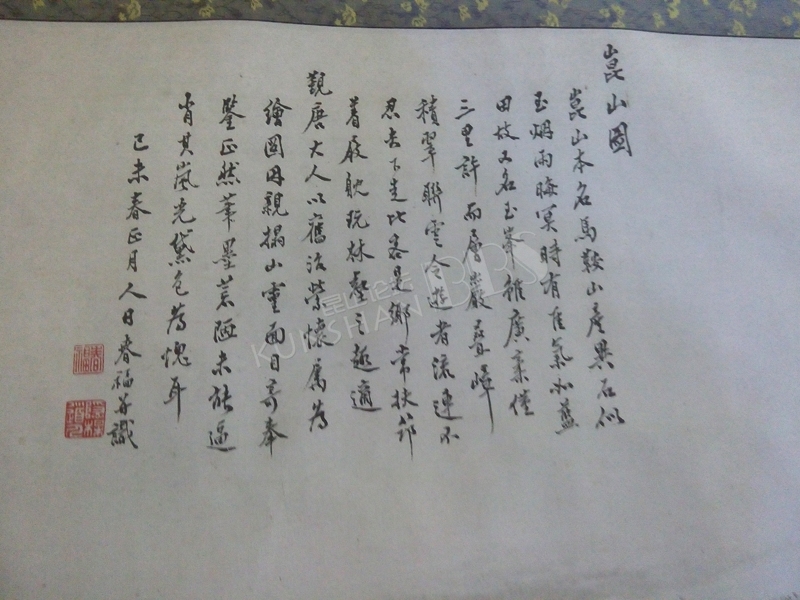 崑山圖
崑山本名馬鞍山產異石似
玉烟雨晦冥時有佳氣如藍
田故又名玉峯雖廣袤僅
三里許而層巖疊嶂
積翠聯雲令遊者流連不
忍去下走比客是鄉常扶筇
着屐躭玩林壑之趣適
觀唐大人以舊治縈懷屬為
繪圖因親搨山靈面目寄奉
鑒正然筆墨荒陋未能逼
肖其嵐光黛色為愧耳
己未春正月人日春福并識
昆山论坛
KUNSHAN BBS